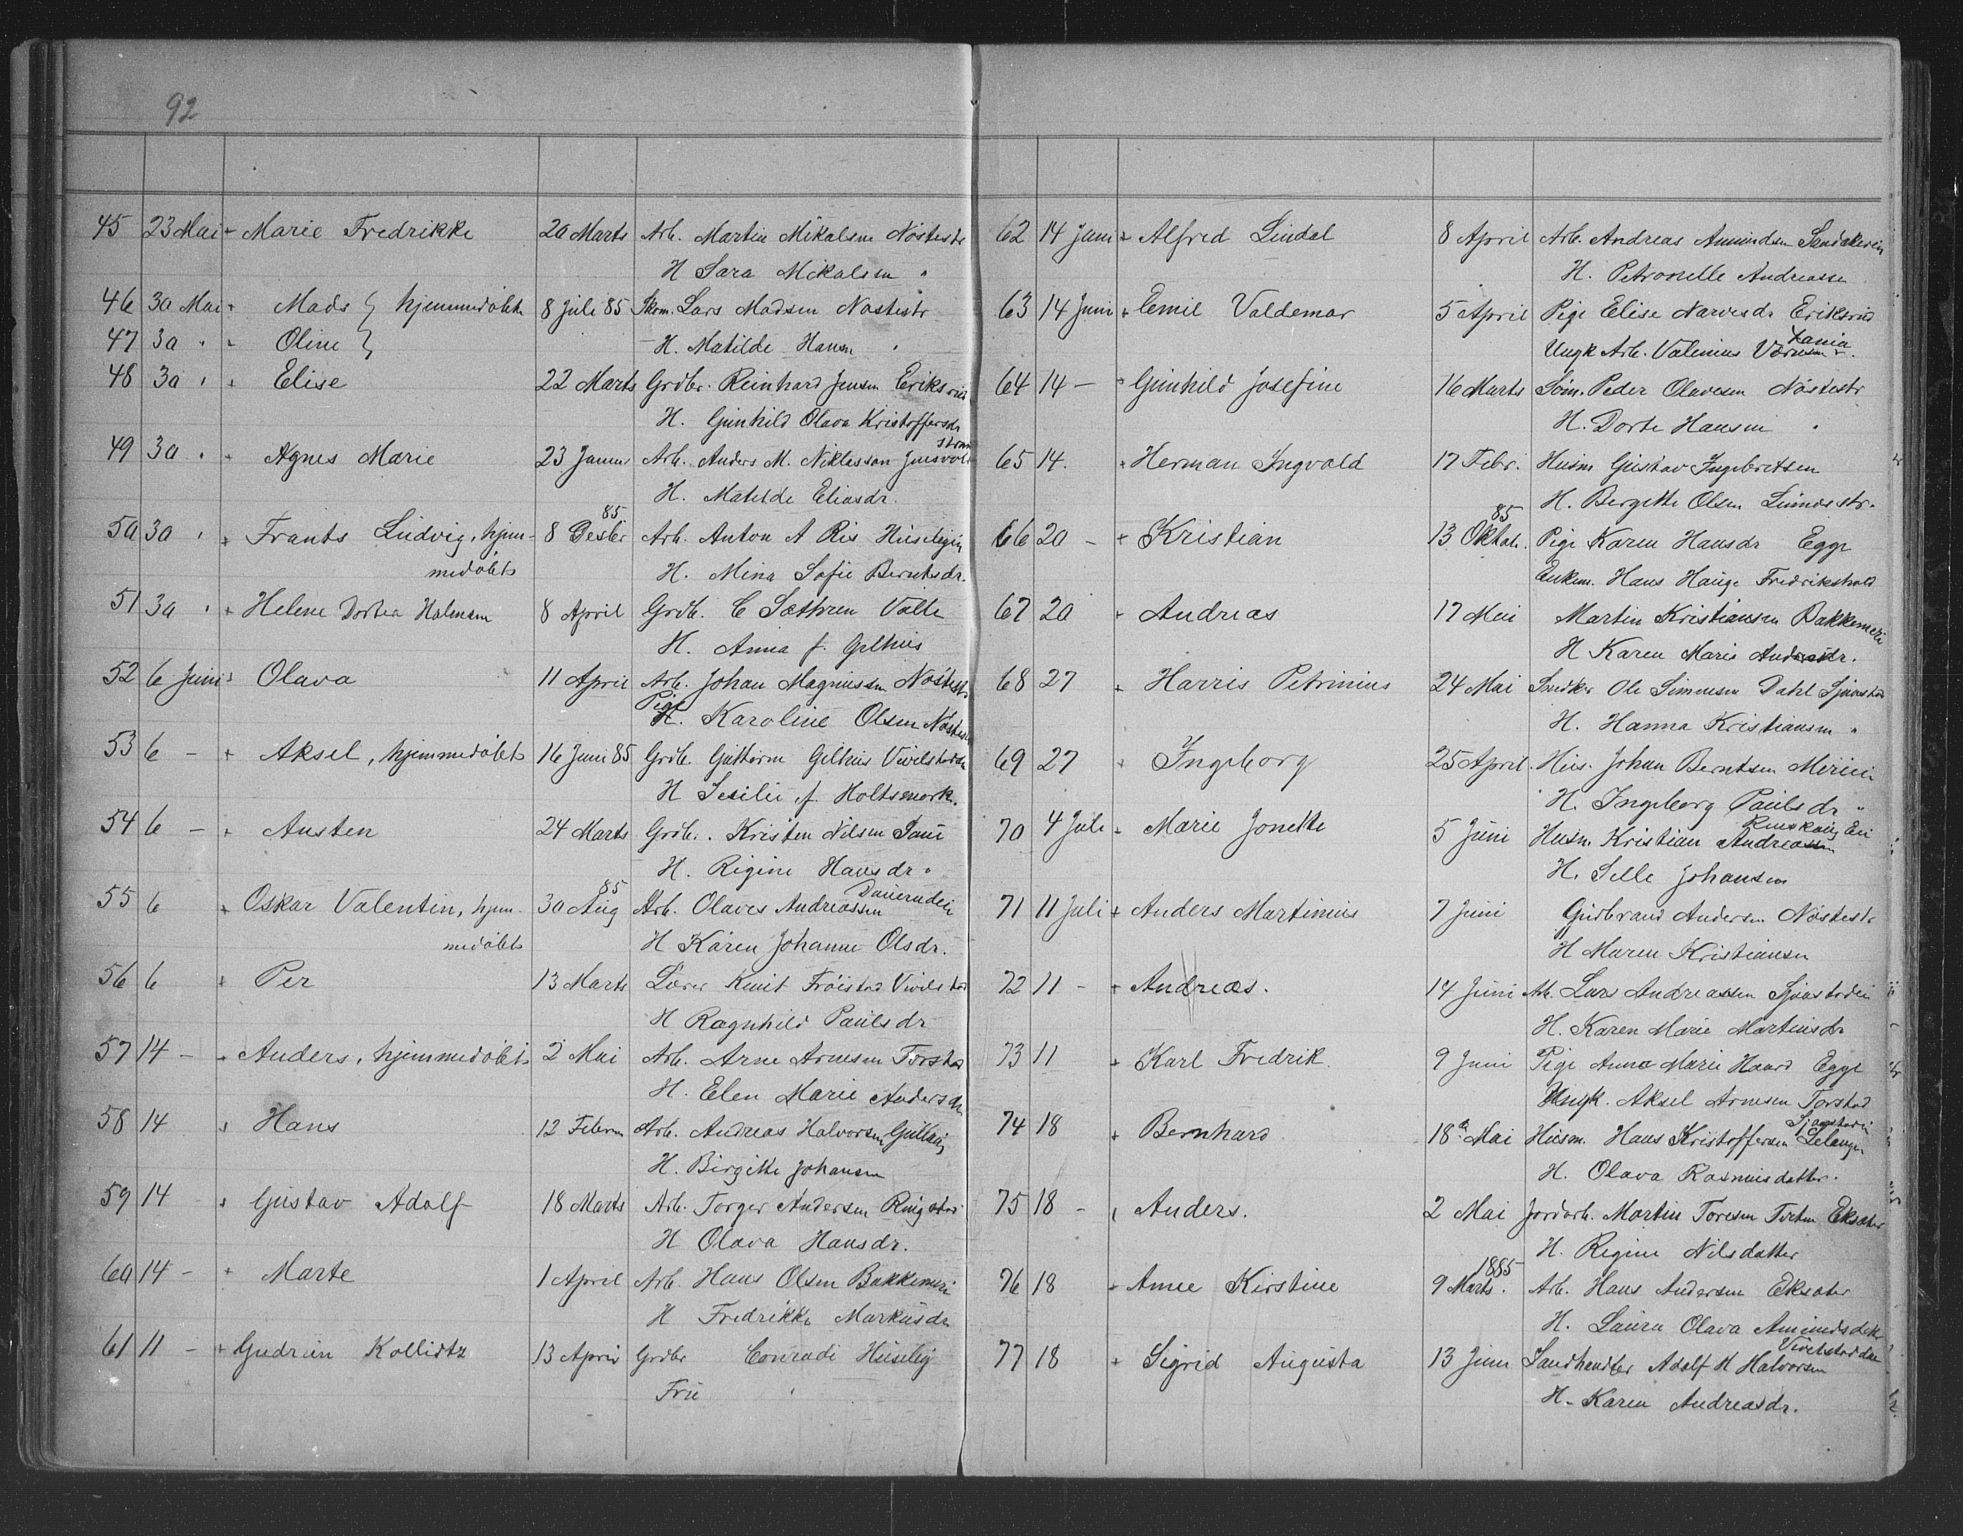 92
45 23 Mai Marie Fredrikke 20 Marts Arb. Martin Mikalsen Nøstestr
H Sara Mikalsen "
46 30 Mai Mads } hjemmedøbte 8 Juli 85 Lars Madsen Nøstestr
47 30 " Oline } H. Matilde Hansen "
48 30 " Elise 22 Marts Grdbr. Reinhard Jensen Eriksrud
H. Gunhild Olava Kristoffersdr
49 30 " Agnes Marie 23 Januar Arb. Anders M. Niklasson
H. Matilde Eliasdr.
50 30 " Frants Ludvig, hjem- 8 Desbr 85 Arb. Anton A Ris Huseligen
medøbt H. Mina Sofie Berntsdr.
51 30 " Helene Dortea Halmsen 8 April Grdb. C Sæthren Valle
H. Anna f. Gilhus
52 6 Juni Olava 11 April Arb. Johan Magnussen Nøstestr
Pige H. Karoline Olsen Nøstestr
53 6 - Aksel, hjemmedøbt 16 Juni 85 Grdb. Guttorm Gilhus Vivelstad
H Sesilie f. Holtsmark.
54 6 - Austen 24 Marts Grdb. Kristen Nilsen
H. Regine Hansdr "
55 6 Oskar Valentin, hjem- 30 Aug 85 Arb. Olaves Andreassen
medøbt H Karen Johanne Olsdr.
56 6 Per 13 Marts Lærer Knut Frøistad Vivelstad
H Ragnhild Paulsdr
57 14 - Anders, hjemmedøbt 2 Mai Arb. Arne Arnesen Torstad
H. Elen Marie Andersdr
58 14 Hans 12 Februar Arb. Andreas Halvorsen Gullaug
H. Birgitte Johansen
59 14 - Gustav Adolf 18 Marts Arb. Torger Andersen Ringstad
H Olava Hansdr.
60 14 - Marte 1 April Arb. Hans Olsen Bakkemeri
H Fredrikke Markusdr
61 11 - Gudrun Kollidtz 13 April Grdbr Conradi Huseby
Frü "
62 14 Juni Alfred Lindal 8 April Arb. Andreas Amundsen Sandakerein
H. Petronelle Andreassen
63 14 Juni Emil Valdemar 5 April Pige Elise Narvesdr Eriksrud
Ungk Arb. Valenius
64 14 - Gunhild Josefine 16 Marts Søm. Peder Olavesen Nøstestr
H. Dorte Hansen "
65 14. Herman Ingvald 17 Febr. Husm Gustav Ingebretsen
H. Bergitte Olsen Lunnestr.
66 20 - Kristian 13 Oktob. 85 Pige Karen Hansdr Egge
Enkem. Hans Hauge Fredrikshald
67 20 Andreas 17 Mai Martin Kristiansen Bakkemeri
H Karen Marie Andreasdr.
68 27 Harris Petrinius 24 Mai Snedker Ole Simensen Dahl Sjaastad
H. Hanna Kristiansen "
69 27 Ingeborg 25 April. Hus. Johan Berntsen Meriei
H. Ingeborg Paulsdr "
70 4 Juli Marie Jonette 5 Juni Husm. Kristian Andreassen
H. Selle Johansen
71 11 Juli Anders Martinius 7 Juni Gudbrand Andersen Nøstestr
H Maren Kristiansen
72 11 - Andreas. 14 Juni Arb. Lars Andreassen Sjaastadein
H. Karen Marie Martinsdr
73 11 Karl Fredrik 9 Juni Pige Anne Marie Haard Egge
Ungk. Aksel Arnesen Torstad
74 18 Bernhard 18de Mai Husm. Hans Kristoffersen Selangen
H. Olava Rasmusdatter.
75 18 - Anders. 2 Mai Jordarb. Martin Toresen Eksæter
H. Regine Nilsdatter
76 18 Anne Kirstine 9 Marts. 1885 Arb. Hans Andersen Eksæter
H. Laura Olava Amundsdatter
77 18 Sigrid Augusta 13 Juni Landhandler Adolf H Halvorsen Vivelstaddal
H. Karen Andreasdr.